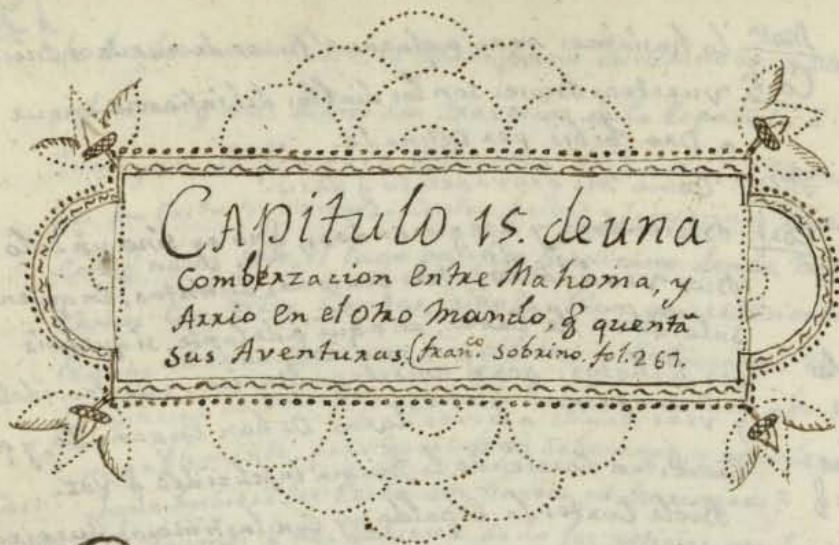 CAPitulo 15. de una
Comberzacion Entre Mahoma, y
Arrio En el Otro Mando, q̃ quentã
Sus Aventuras. (fran.co Sobrino. fol. 267.